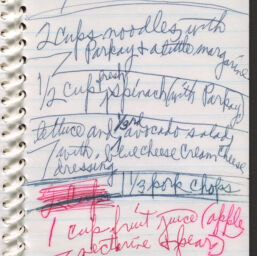 2 cups noodles, with
Parkay & a little margarine
1/2 cup fresh spinach (with Parkay)
lettuce and 1/3rd avocado salad
with blue cheese cream cheese
dressing
1 1/3 pork chops
1 cup fruit juice (apple
nectarine & pear)